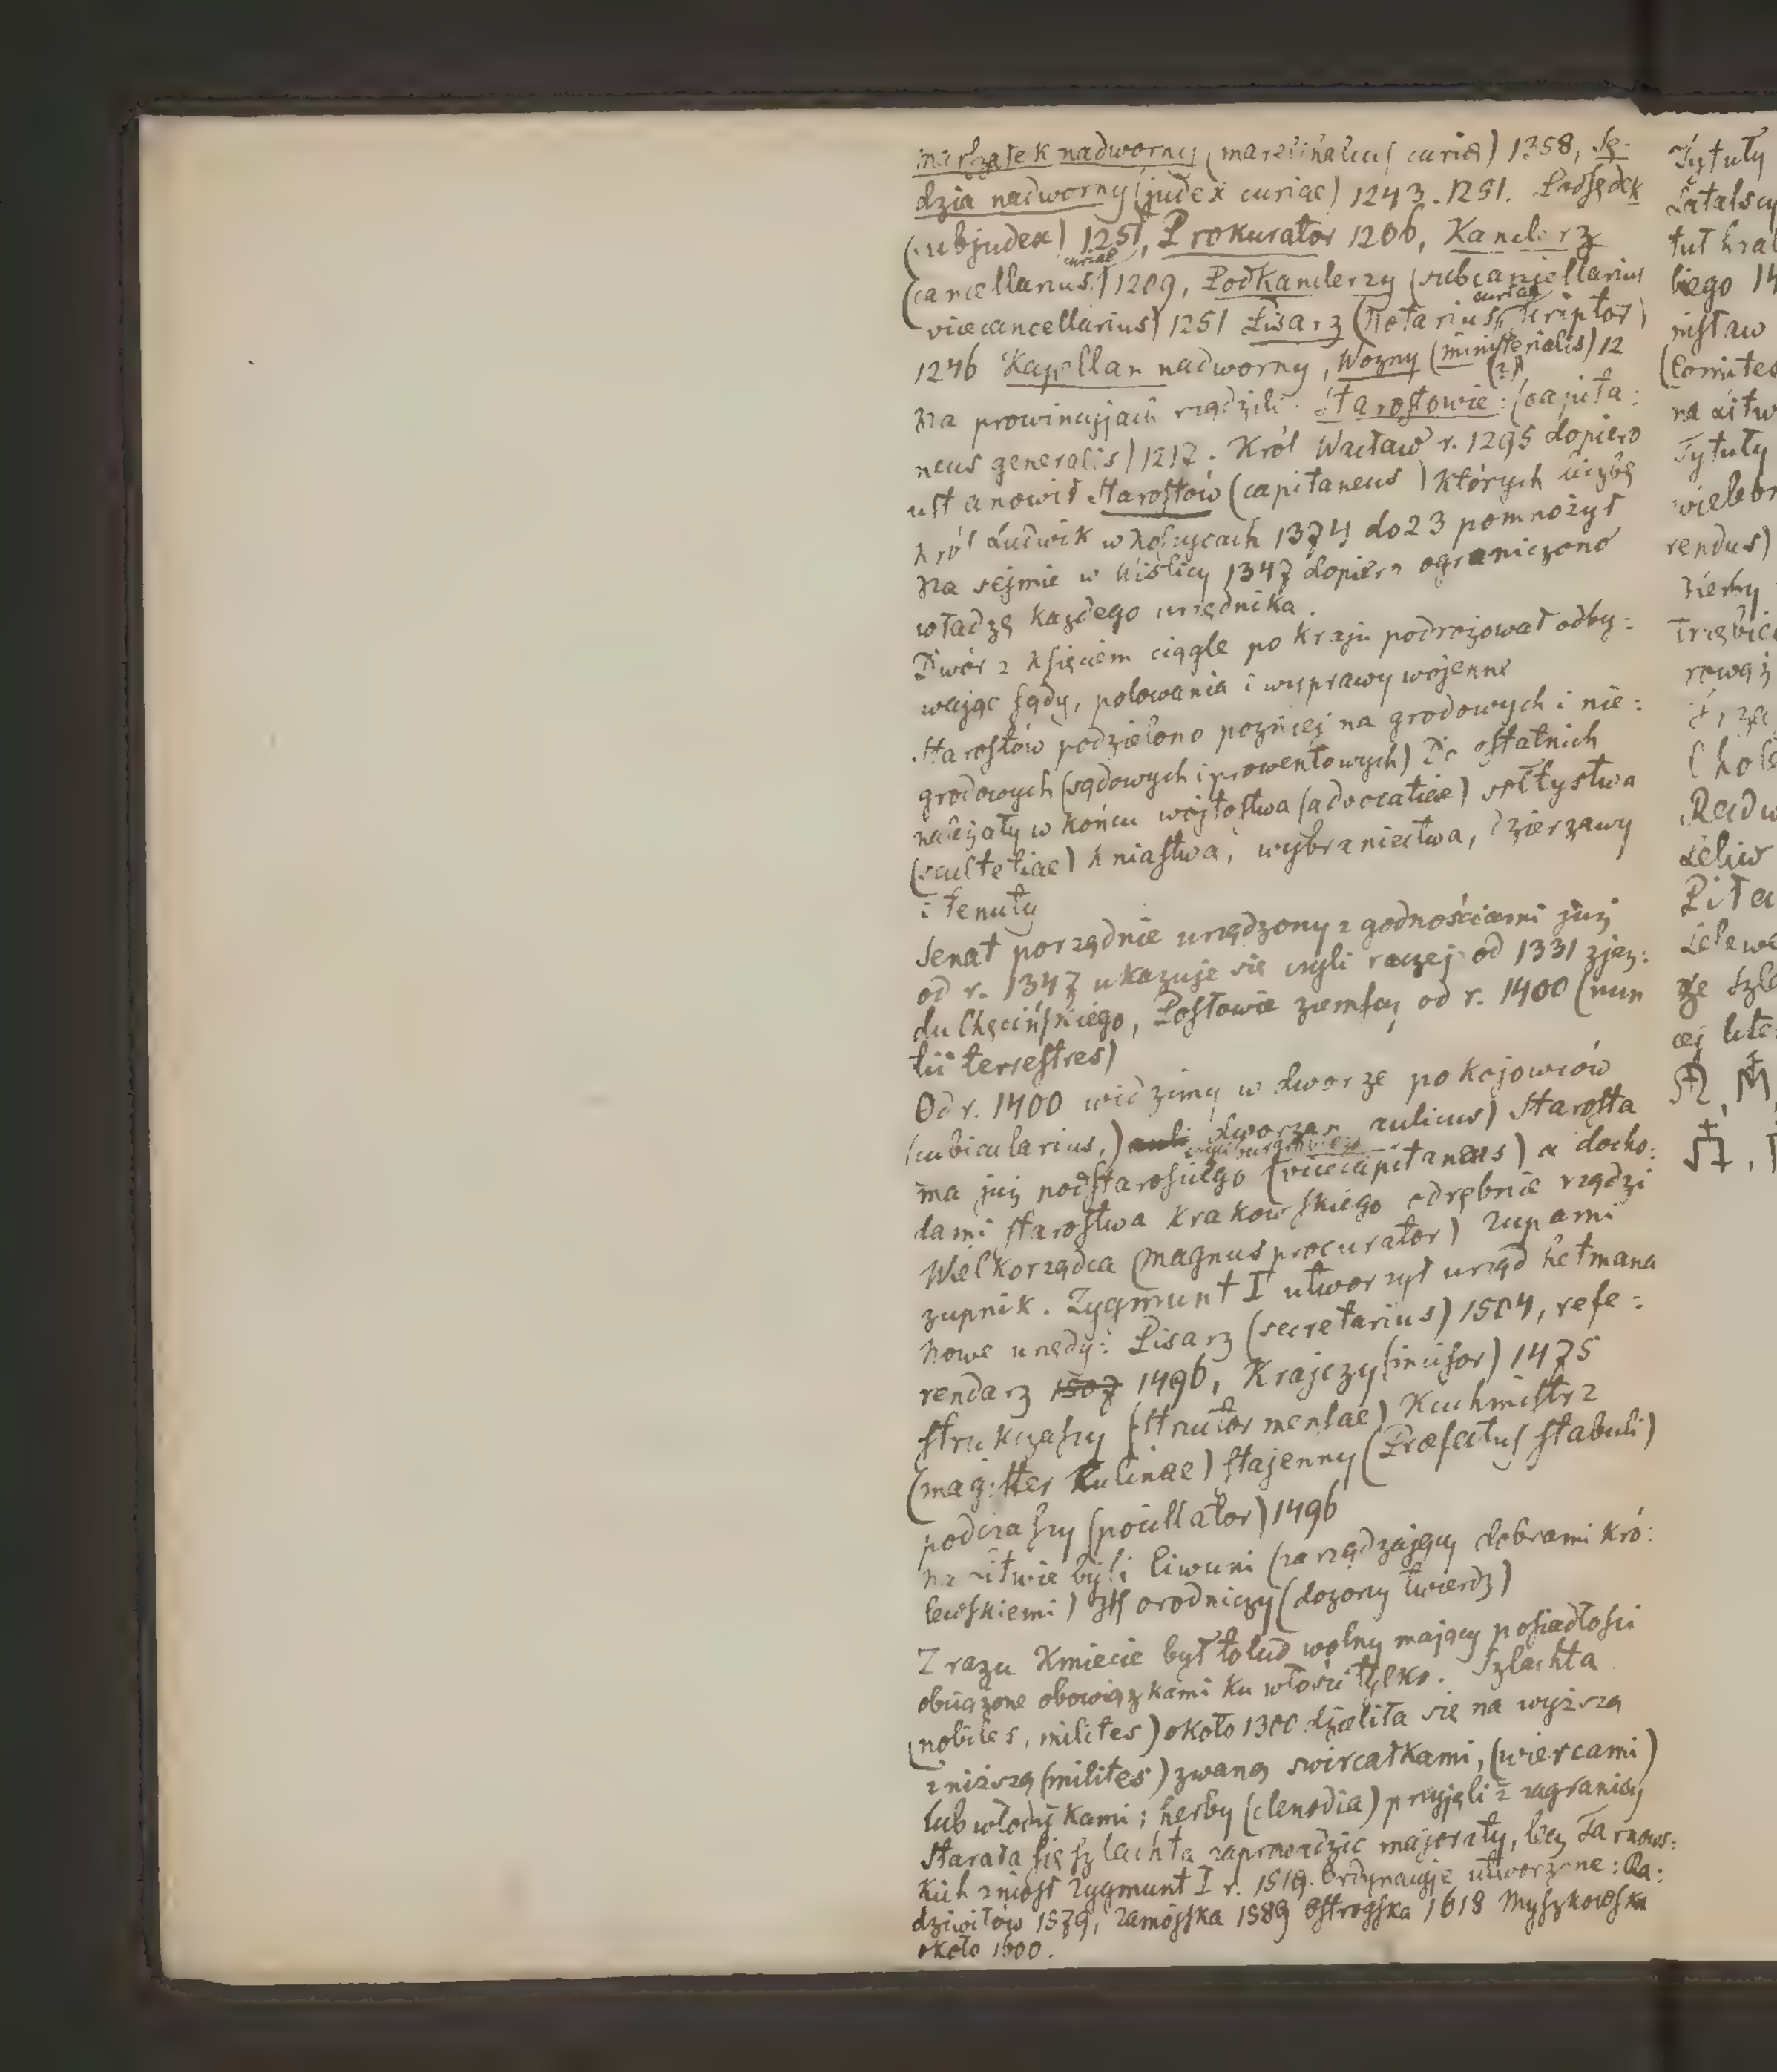 marszałek nadworny (mareschalcus curiae) 1358, Sę-
dzia nadworny (judex curiae) 1243. 1251. Podsędek
(subjudex) 1251, Prokurator 1206, Kanclerz
(cancellarius curiae) 1209, Podkanclerzy (subcancellarius
vicecancellarius) 1251 Pisarz (Notarius curiae, scriptor)
1246 Kapellan nadworny, Wozny (ministerialis) 12
Na prowincyjach rządzili Starostowie: (capita:
neus generalis) 1212. Król Wacław r. 1295 dopiero
ustanowił Starostów (capitaneus) których liczbę
król Ludwik w Koszycach 1374 do 23 pomnożył
Na sejmie w Wiślicy 1347 dopiero ograniczono
władzę każdego urzędnika.
Dwór z księciem ciągle po kraju podrożował odby:
wając sądy, polowania i wyprawy wojenne
Starostów podzielono pozniej na grodowych i nie:
grodowych (sądowych i prowentowych) Do ostatnich
należały w końcu wojtostwa (advocatiae) sołtystwa
(scultetiae) kniastwa, wybraniectwa, dzierzawy
i tenuty
Senat porządnie urządzony z godnościami już
od r. 1347 ukazuje się czyli raczej od 1331 zjaz:
du Chęcińskiego, Posłowie ziemscy od r. 1400 (nun
tii terrestres)
Od r. 1400 widzimy w dworze pokojowców
(cubicularius,) auli dworzan aulicus) Starosta
ma już podstarosciego (vicecapitaneus) a docho:
dami starostwa Krakowskiego odrębnie rządzi
Wielkorządca (magnus procurator) zupami
zupnik. Zygmunt I utworzył urząd hetmana
nowe urzędy: Pisarz (secretarius) 1504, refe:
rendarz 1507 1496, Krajczy (incisor) 1475
strukczaszy (structor mensae) Kuchmistrz
(magister Kulinae) stajenny (Praefectus stabuli)
podczaszy (pocillator) 1496
na Litwie byli Ciwuni (zarządzający dobrami kró:
lewskiemi) Horodniczy (dozorcy twierdz)
Z razu Kmiecie był to lud wolny mający posiadłości
obciążone obowiązkami ku włości tylko. Szlachta
(nobiles, milites) około 1300 dzieliła się na wyższą
i niższą (milites) zwaną swircałkami, (wiercami)
lub włodykami; herby (clenodia) przyjęli z zagranicy
Starała się szlachta zaprowadzic majoraty, lecz Tarnows:
kich zniósł Zygmunt I r. 1519. Ordynacyje utworzone: Ra:
dziwiłów 1579, Zamojska 1589 Ostrogska 1618 Myszkowska
około 1600.
Tytuły
rendus)